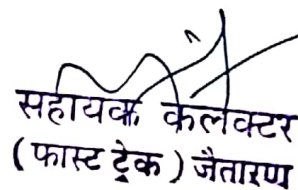 सहायक कलेक्टर
(फास्ट ट्रेक) जैतारण